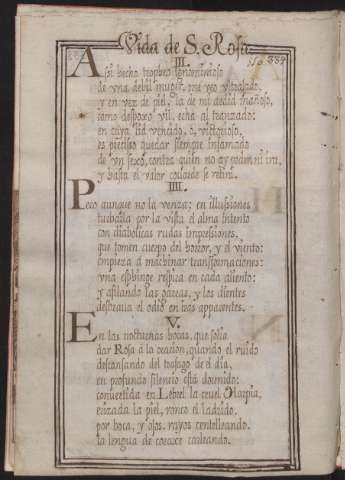 Vida de S. Rosa
III.
Assi hecho tropheo ignominioso
de vna debil muger, me veo y
y en vez de piel, la de mi ardid mañoso,
como despojo vil, echa al trenzado:
en cuya lid vencido, o, victorioso,
es preciso quedar siempre infamado
de vn sexo, contra quien no ay
y hasta el valor cobarde se retira.
IIII.
Pero aunque no la venza: en illussiones
turbarla por la vista el alma intento
con diabolicas rudas impressiones,
que tomen cuerpo del horror, y el viento:
empieza à machinar transformaciones:
vna esphinge respira en cada aliento:
y afilando las garras, y los dientes
disfraza el odio en tras apparentes.
V.
En las nocturnas horas, que solia
dar Rosa à la oracion, quando el ruido
descansando del trafago de el dia,
en profundo silencio està dormido:
convertida en Lebrel la cruel Harpia,
erizada la piel, ronco el ladrido,
por boca, y ojos, rayos centelleando,
la lengua de